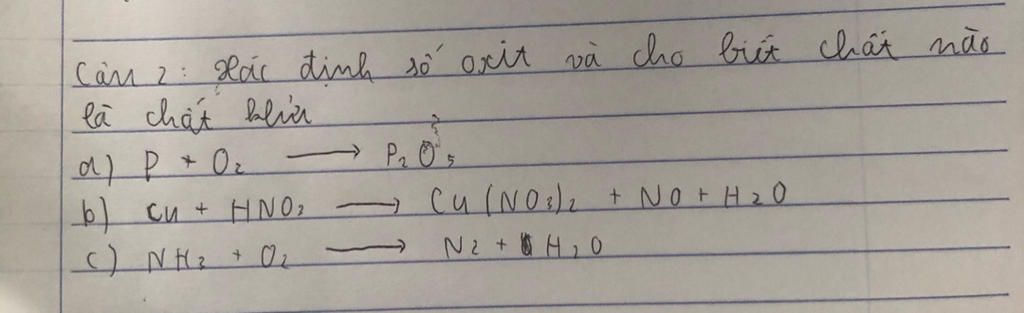 Câu 2: Xác định số oxit và cho biết chất nào
là chất khử
a) P + O₂ → P₂O₅
b) Cu + HNO₃ → Cu(NO₃)₂ + NO + H₂O
c) NH₃ + O₂ → N₂ + H₂O